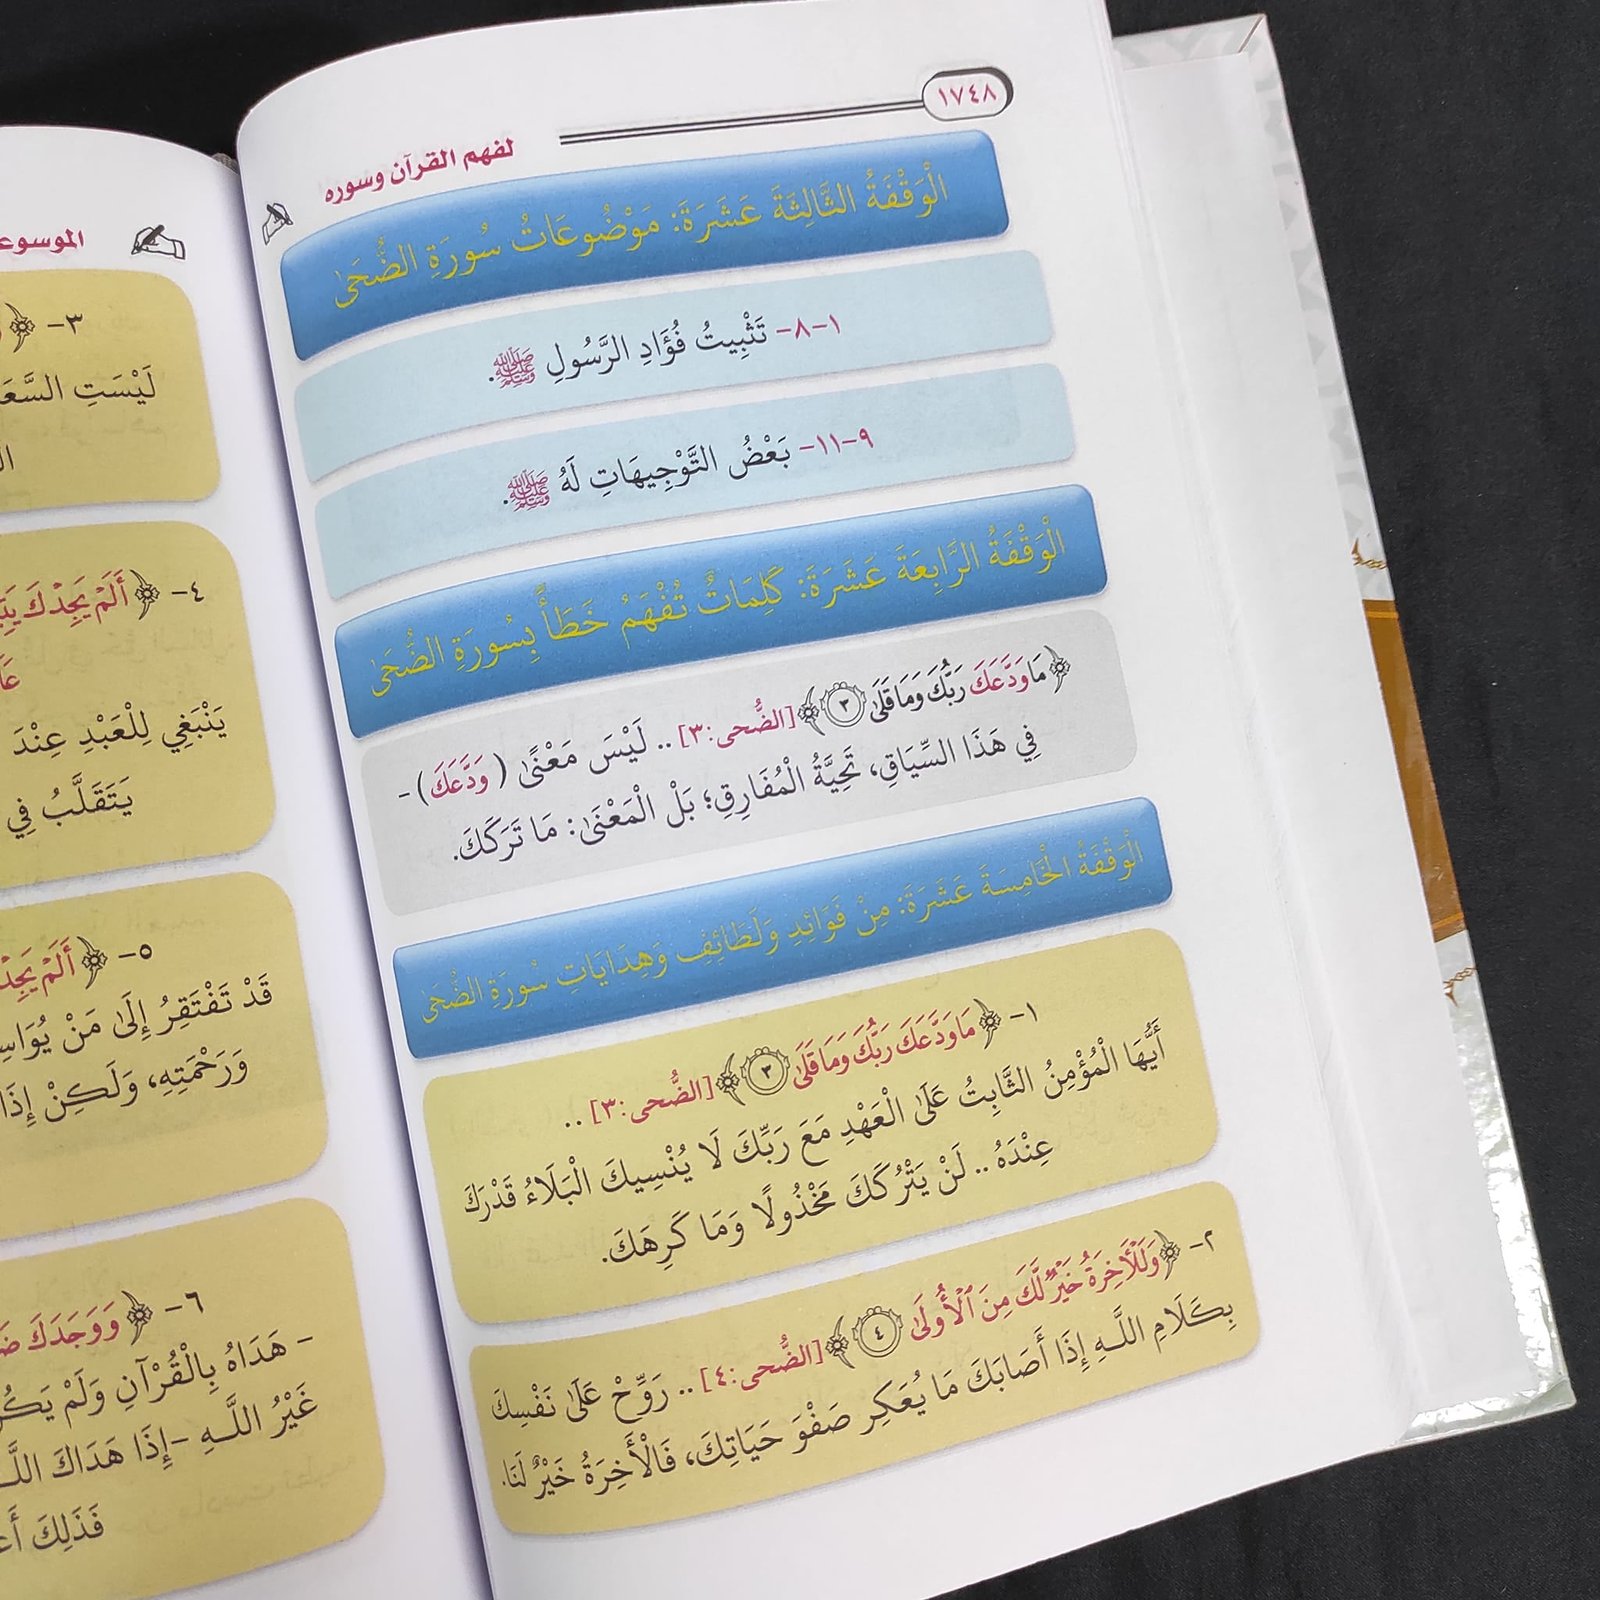 ١٧٤٨
لفهم القرآن وسوره
الْوَقْفَةُ الثَّالِثَةَ عَشَرَةَ: مَوْضُوعَاتُ سُورَةِ الضُّحَىٰ
١-٨- تَثْبِيتُ فُؤَادِ الرَّسُولِ ﷺ.
٩-١١- بَعْضُ التَّوْجِيهَاتِ لَهُ ﷺ.
الْوَقْفَةُ الرَّابِعَةَ عَشَرَةَ: كَلِمَاتٌ تُفْهَمُ خَطَأً بِسُورَةِ الضُّحَىٰ
﴿مَا وَدَّعَكَ رَبُّكَ وَمَا قَلَىٰ ٣﴾ [الضُّحى:٣] .. لَيْسَ مَعْنًى (وَدَّعَكَ) -
فِي هَذَا السِّيَاقِ، تَحِيَّةُ الْمُفَارِقِ؛ بَلْ الْمَعْنَىٰ: مَا تَرَكَكَ.
الْوَقْفَةُ الْخَامِسَةَ عَشَرَةَ: مِنْ فَوَائِدِ وَلَطَائِفِ وَهِدَايَاتِ سُورَةِ الضُّحَىٰ
١- ﴿مَا وَدَّعَكَ رَبُّكَ وَمَا قَلَىٰ ٣﴾ [الضُّحى:٣] ..
أَيُّهَا الْمُؤْمِنُ الثَّابِتُ عَلَىٰ الْعَهْدِ مَعَ رَبِّكَ لَا يُنْسِيكَ الْبَلَاءُ قَدْرَكَ
عِنْدَهُ .. لَنْ يَتْرُكَكَ مَخْذُولًا وَمَا كَرِهَكَ.
٢- ﴿وَلَلْأَخِرَةُ خَيْرٌ لَّكَ مِنَ ٱلْأُولَىٰ ٤﴾ [الضُّحى:٤] .. رَوِّحْ عَلَىٰ نَفْسِكَ
بِكَلَامِ اللَّهِ إِذَا أَصَابَكَ مَا يُعَكِر صَفْوَ حَيَاتِكَ، فَالْأَخِرَةُ خَيْرٌ لَنَا.
٣- ﴿
لَيْسَتِ
٤- ﴿أَلَمْ يَجِدْكَ
يَنْبَغِي لِلْعَبْدِ عِنْدَ
يَتَقَلَّبُ فِي
٥- ﴿أَلَمْ
قَدْ تَفْتَقِرُ إِلَىٰ مَنْ
وَرَحْمَتِهِ، وَلَكِنْ إِذَا
٦- ﴿وَوَجَدَكَ
- هَدَاهُ بِالْقُرْآنِ وَلَمْ
غَيْرُ اللَّهِ -إِذَا هَدَاكَ
فَذَلِكَ